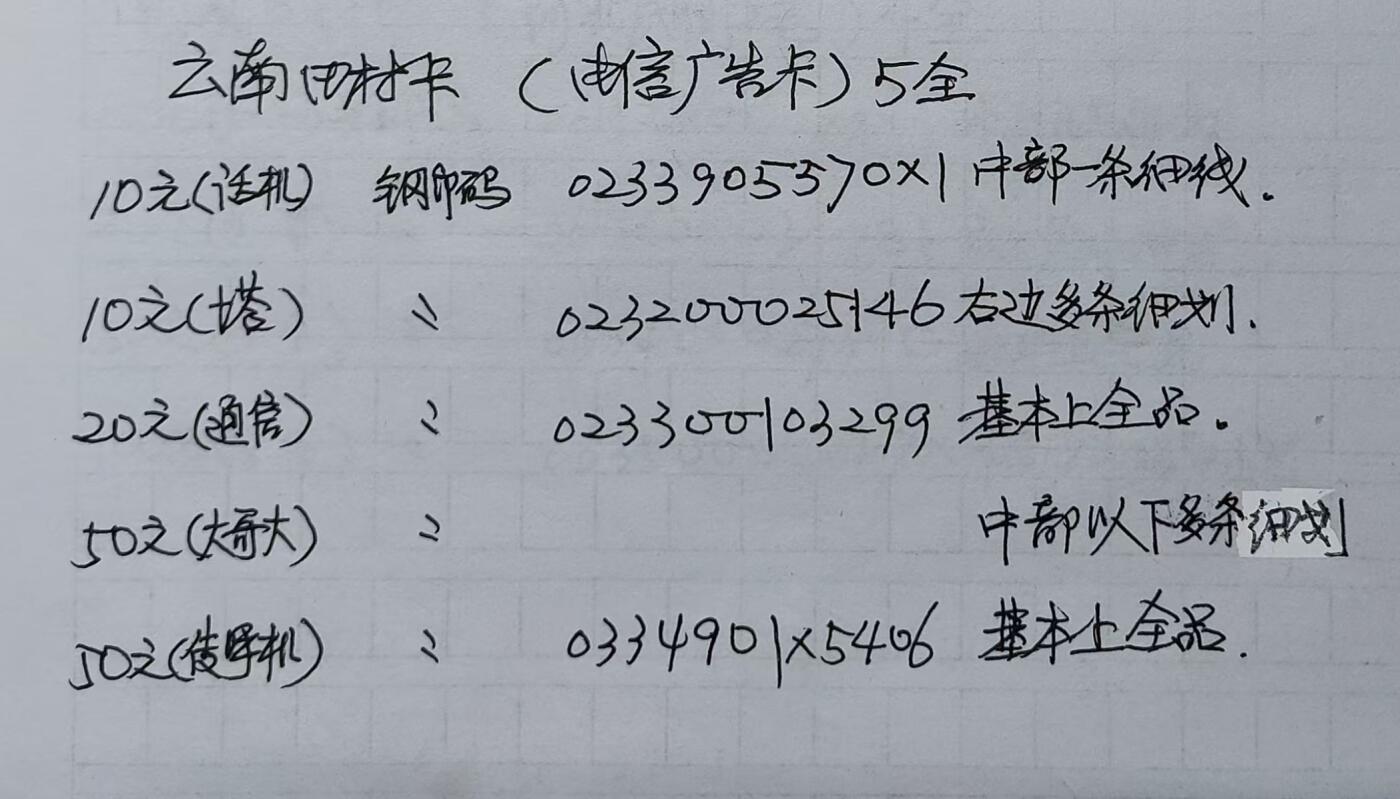 云南田村卡 (电信广告卡) 5全
10元(话机) 钢印码 0233905570×1 中部一条细线.
10元(塔) 〃 023200025146 右边多条细划.
20元(通信) 〃 023300103299 基本上全品.
50元(大哥大) 〃 中部以下多条细划
50元(传呼机) 〃 0334901×5406 基本上全品.